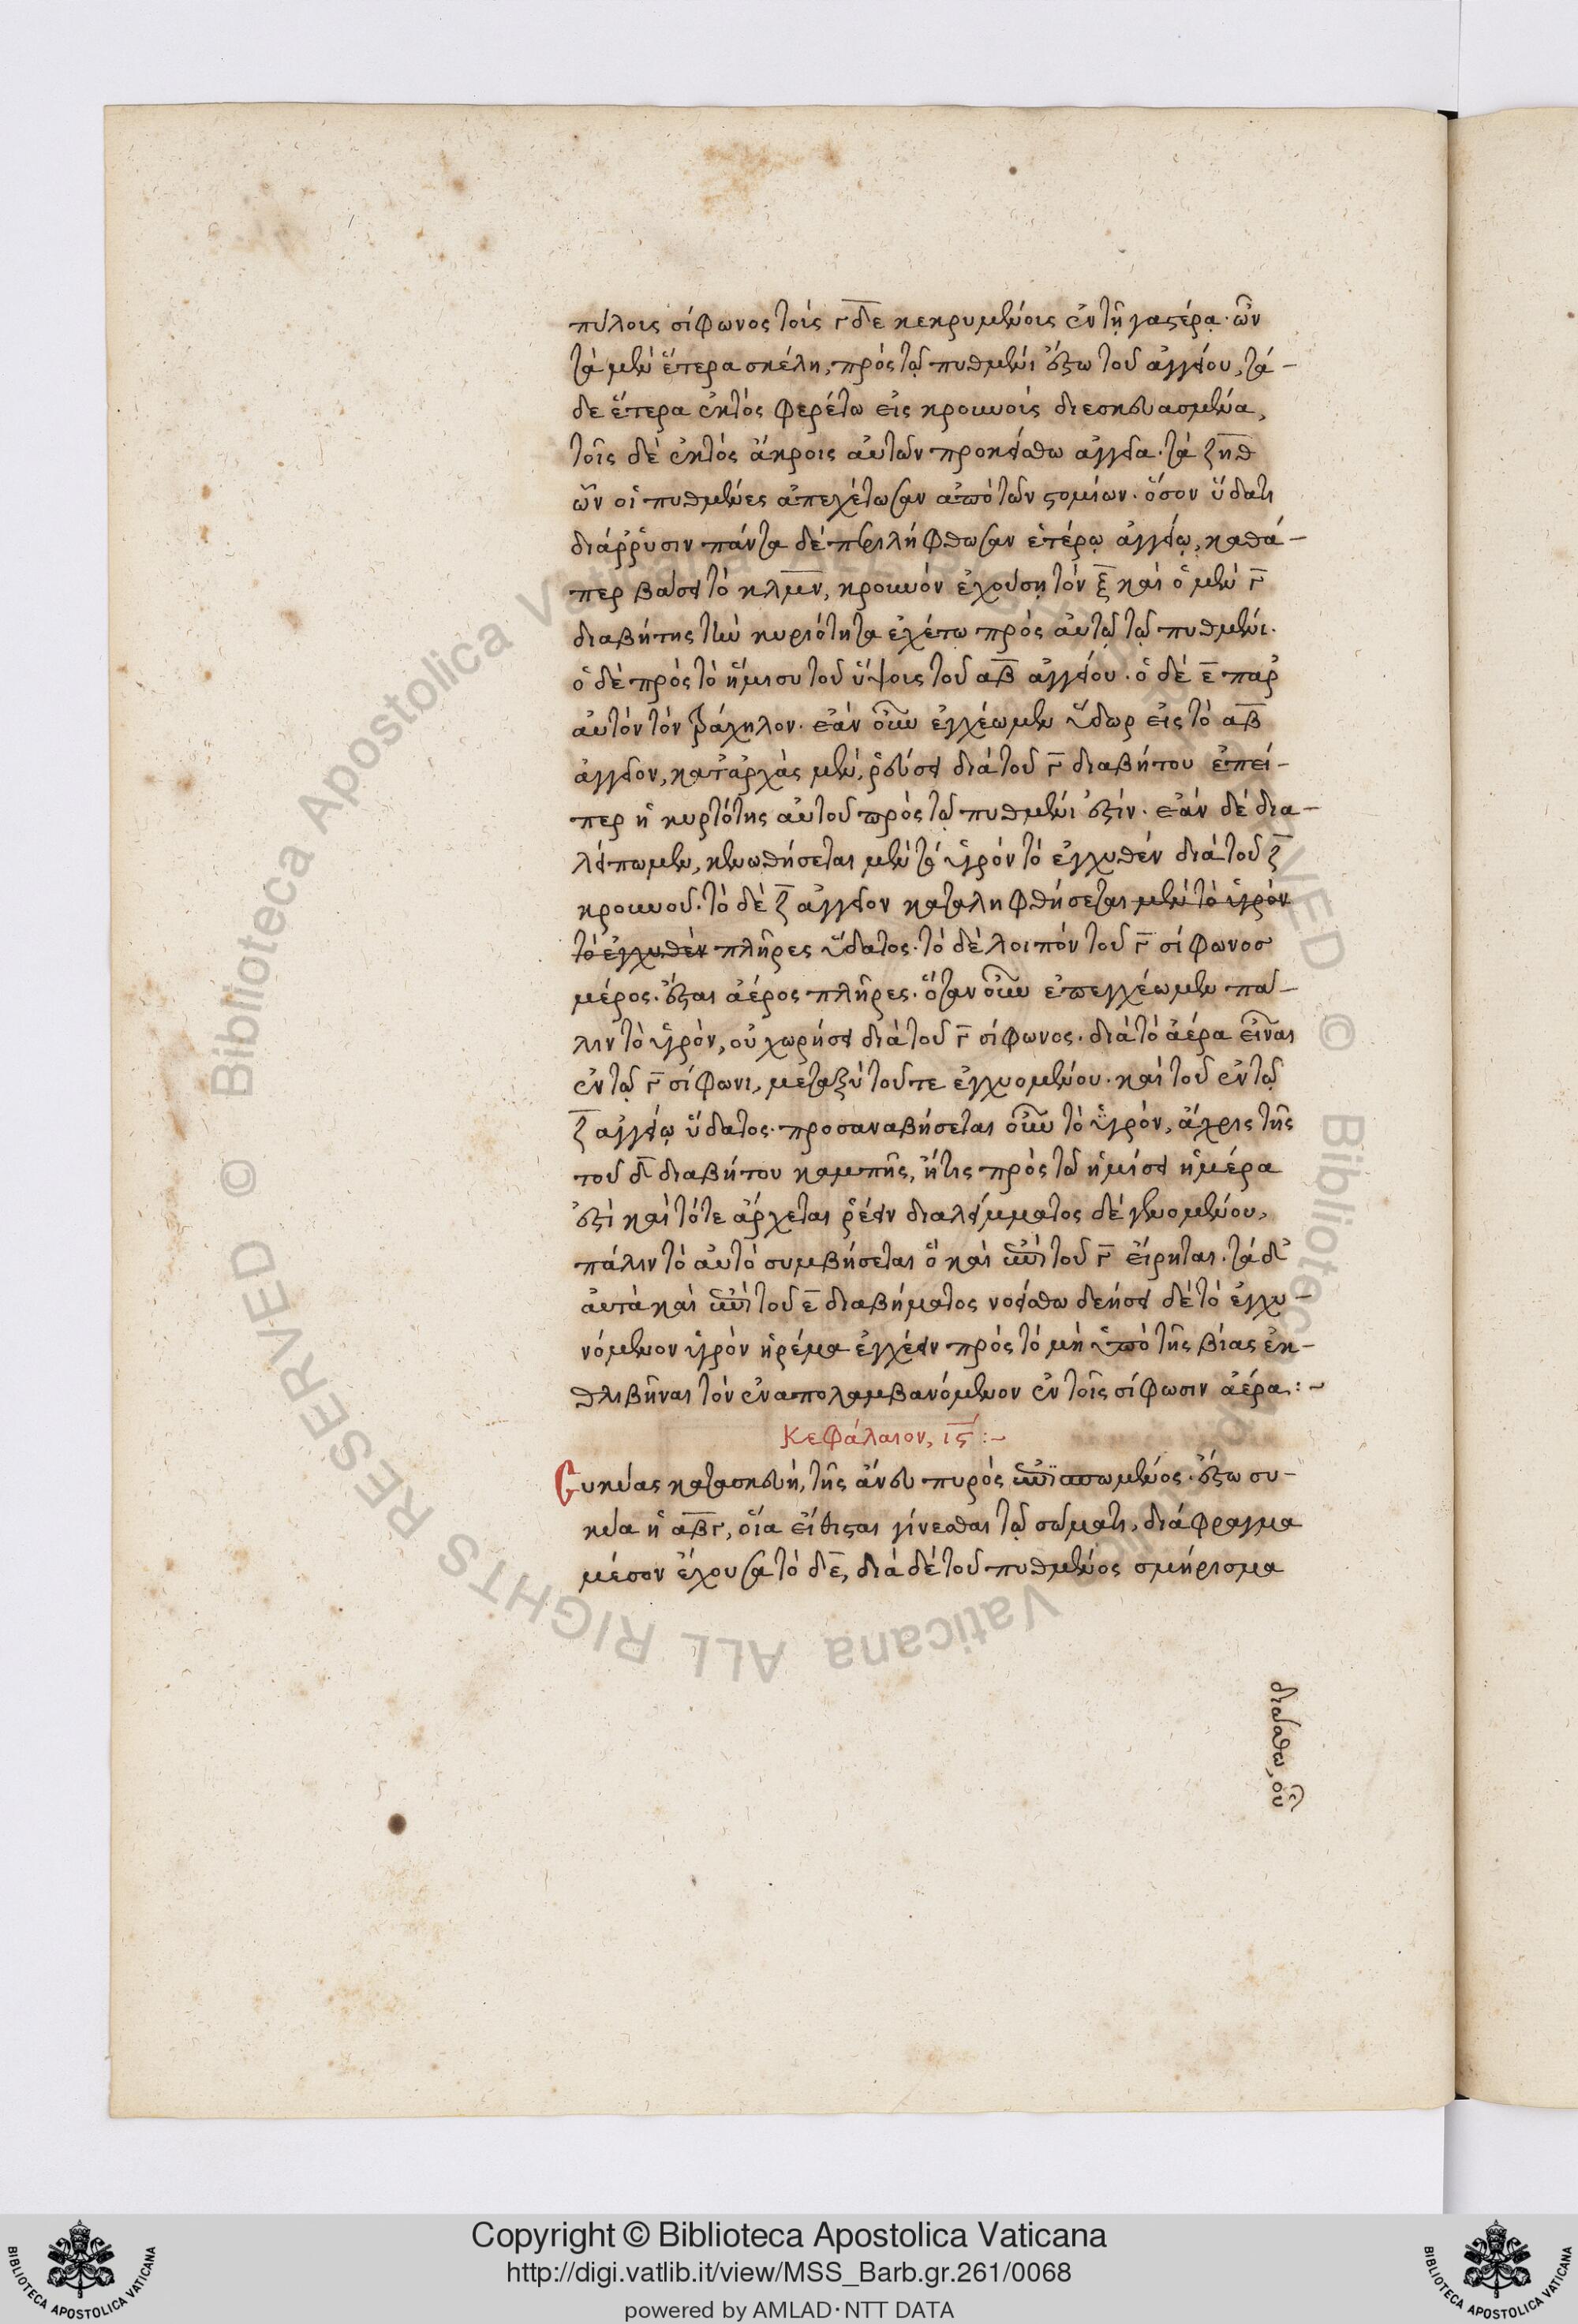 πύλοις σίφωνος τοῖς γδε κεκρυμμένοις ἐν τῇ γαστέρᾳ· ὧν
τὰ μὲν ἕτερα σκέλη, πρὸς τῷ πυθμένι ἔστω τοῦ ἀγγείου, τά-
δε ἕτερα ἐκτὸς φερέτω εἰς κρουνοὺς διεσκευασμένα,
τοῖς δὲ ἐκτὸς ἄκροις αὐτῶν προκείσθω ἀγγεῖα· τὰ ζηθ
ὧν οἱ πυθμένες ἀπεχέτωσαν ἀπὸ τῶν στομίων· ὅσον ὕδατι
διάῤῥυσιν πάντα δὲ περιλήφθωσαν ἑτέρῳ ἀγγείῳ, καθά-
περ βάσει τὸ κλμν, κρουνὸν ἐχούσῃ τὸν ξ καὶ ὁ μὲν γ
διαβήτης τὴν κυριότητα ἐχέτω πρὸς αὐτῷ τῷ πυθμένι·
ὁ δὲ πρὸς τὸ ἥμισυ τοῦ ὕψοις τοῦ αβ ἀγγείου· ὁ δὲ ε παρ'
αὐτὸν τὸν τράχηλον· ἐὰν οὖν ἐγχέωμεν ὕδωρ εἰς τὸ αβ
ἀγγεῖον, κατ' ἀρχὰς μὲν, ῥεύσει διὰ τοῦ γ διαβήτου ἐπεί-
περ ἡ κυρτότης αὐτοῦ πρὸς τῷ πυθμένι ἐστίν· ἐὰν δὲ δια-
λείπωμεν, κενωθήσεται μὲν τὸ ὑγρὸν τὸ ἐγχυθὲν διὰ τοῦ ζ
κρουνοῦ· τὸ δὲ ζ ἀγγεῖον καταληφθήσεται μὲν τὸ ὑγρὸν
τὸ ἐγχυθὲν πλῆρες ὕδατος· τὸ δὲ λοιπὸν τοῦ γ σίφωνος
μέρος· ἔσται ἀέρος πλῆρες· ὅταν οὖν ἐπεγχέωμεν πά-
λιν τὸ ὑγρὸν, οὐ χωρήσει διὰ τοῦ γ σίφωνος· διὰ τὸ ἀέρα εἶναι
ἐν τῷ γ σίφωνι, μεταξὺ τοῦ τε ἐγχυομένου· καὶ τοῦ ἐν τῷ
ζ ἀγγείῳ ὕδατος· προσαναβήσεται οὖν τὸ ὑγρὸν, ἄχρις τῆς
τοῦ δ διαβήτου καμπῆς, ἥτις πρὸς τῷ ἡμίσει ἡμέρα
ἐστὶ καὶ τότε ἄρχεται ῥέειν διαλείμματος δὲ γενομένου,
πάλιν τὸ αὐτὸ συμβήσεται ὃ καὶ ἐπὶ τοῦ γ εἴρηται· τὰ δ'
αὐτὰ καὶ ἐπὶ τοῦ ε διαβήματος νοείσθω δεήσει δὲ τὸ ἐγχυ-
νόμενον ὑγρὸν ἠρέμα ἐγχέειν πρὸς τὸ μὴ ὑπὸ τῆς βίας ἐκ-
θλιβῆναι τὸν ἐναπολαμβανόμενον ἐν τοῖς σίφωσιν ἀέρα:~
Κεφάλαιον, ιϛ:~
Συκύας κατασκευὴ, τῆς ἄνευ πυρὸς ἐπισπωμένος· ἔστω συ-
κύα ἡ αβγ, οἵα εἴθισται γίνεσθαι τῷ σώματι, διάφραγμα
μέσον ἔχουσα τὸ δε, διὰ δὲ τοῦ πυθμένος σμήρισμα
διώσθω, οὗ